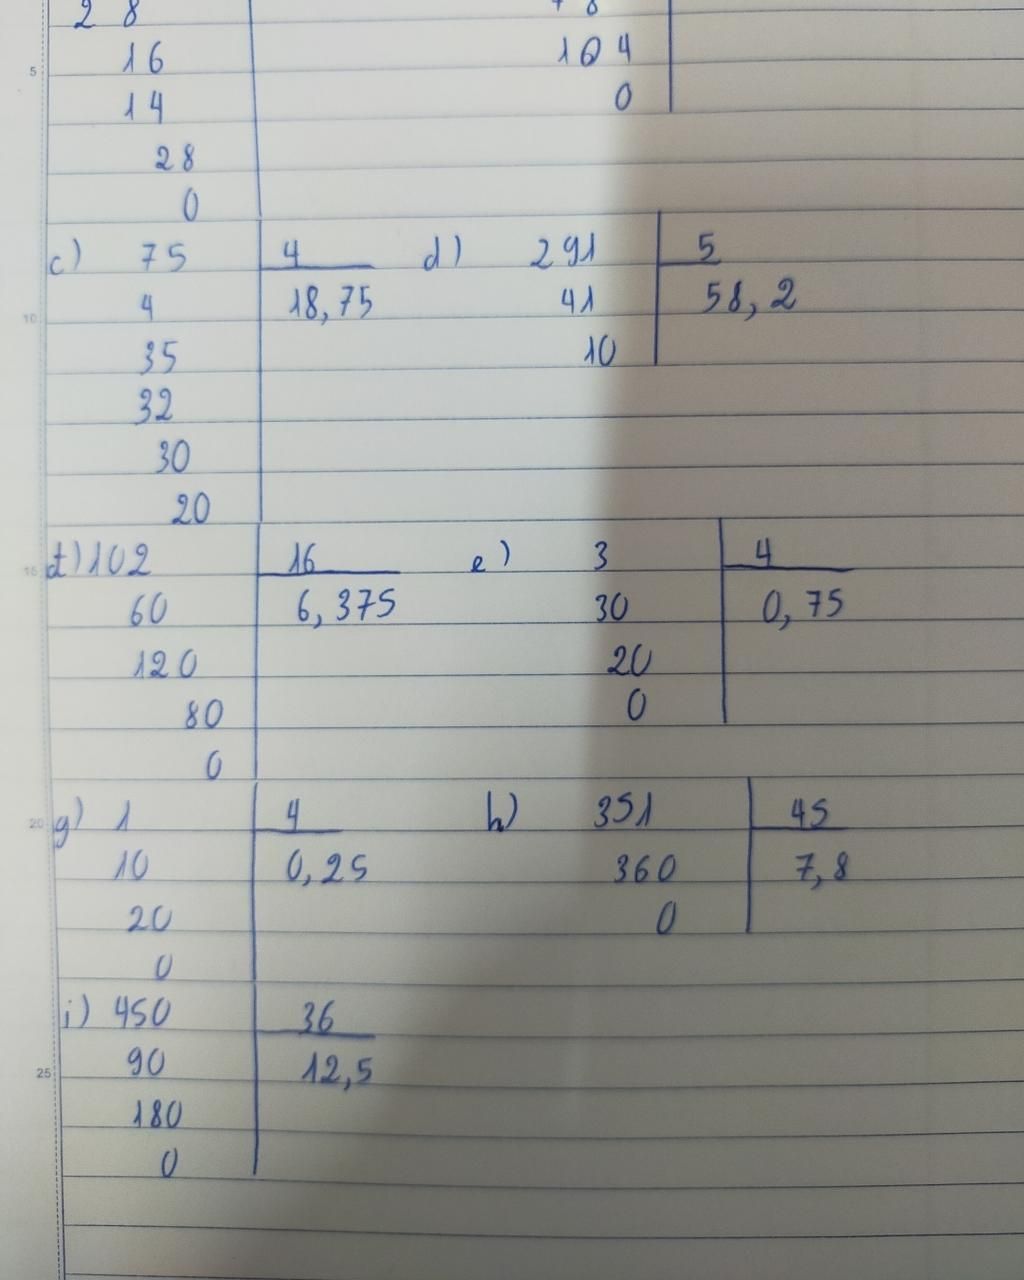 2 8
16 104
14 0
28
0
c) 75 4 d) 291 5
4 18,75 41 58,2
35 10
32
30
20
t) 102 16 e) 3 4
60 6,375 30 0,75
120 20
80 0
0
g) 1 4 h) 351 45
10 0,25 360 7,8
20 0
0
i) 450 36
90 12,5
180
0
5
10
15
20
25